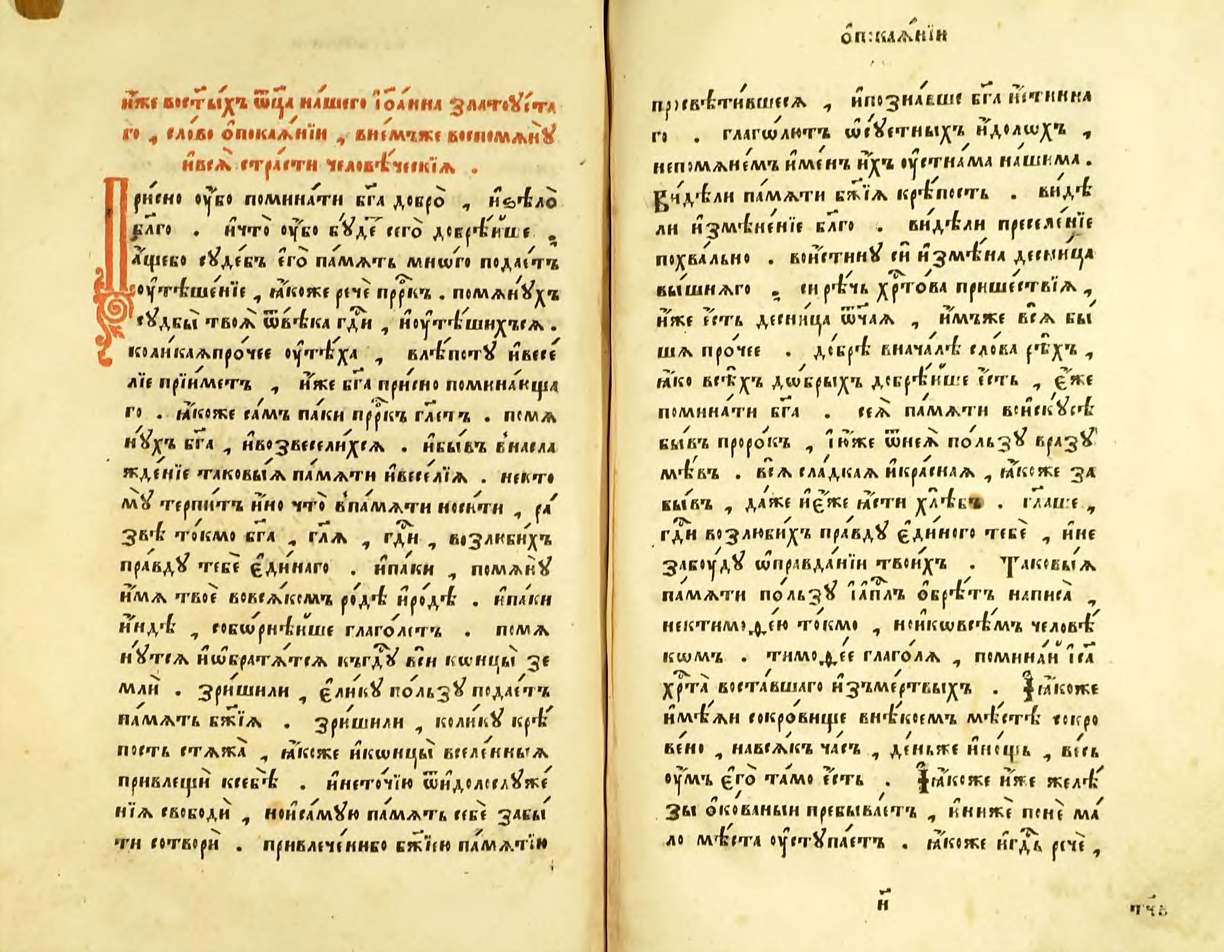 и҆́же восты́хъ ѿц҃а на́шего і҆ѡа́нна златоꙋ́ста
го , сло́во ѡ҆покаѧ́нїи , вне́мъже воспомѧнꙋ̀
и҆всѧ̀ стра́сти человѣ́ческїѧ .
При́сно оу҆́бо помина́ти бг҃а добро̀ , и҆ѕѣло̀
бл҃го . и҆что̀ оу҆́бо бꙋ́де сего̀ добрѣ́йше .
а҆́щебо сꙋде́бъ е҆го̀ па́мѧть мно́го подае́тъ
оу҆тѣше́нїе , ꙗ҆́коже речѐ прⷪ҇ркъ . помѧнꙋ́хъ
сꙋдбы̀ твоѧ̀ ѿвѣ́ка гдⷭ҇и , и҆оу҆тѣ́шихъсѧ .
коли́каѧпро́чее оу҆тѣ́ха , влѣ́потꙋ и҆весе́
лїе прїи́метъ , и҆́же бг҃а при́сно помина́юща
го . ꙗ҆́коже са́мъ па́ки прⷪ҇ркъ гл҃етъ . помѧ
нꙋ́хъ бг҃а , и҆возвесели́хсѧ . и҆бы́въ внасла
жде́нїе таковы́ѧ па́мѧти и҆весе́лїѧ . некто
мꙋ̀ терпи́тъ и҆́но что̀ в̾па́мѧти носи́ти , ра́
звѣ то́кмо бг҃а , гл҃ѧ , гдⷭ҇и , возлюби́хъ
пра́вдꙋ тебѐ є҆ди́наго . и҆па́ки , помѧнꙋ̀
и҆́мѧ твоѐ вовсѧ́комъ ро́дѣ и҆ро́дѣ . и҆па́ки
и҆́ндѣ , собо́рнѣйше глаго́летъ . помѧ
нꙋ́тсѧ и҆ѡ҆братѧ́тсѧ къгдⷭ҇ꙋ всѝ концы̀ зе
млѝ . зри́шили , є҆ли́кꙋ по́льзꙋ подае́тъ
па́мѧть бж҃їѧ . зри́шили , коли́кꙋ крѣ́
пость стѧжа̀ , ꙗ҆́коже и҆концы̀ вселе́нныѧ
привлещѝ ксебѣ̀ . и҆нето́чїю ѿи҆долослꙋже́
нїѧ свободѝ , нои҆са́мꙋю па́мѧть себѐ забы́
ти сотворѝ . привлече́нибо бж҃їею па́мѧтїю
ѡ҆п:каѧ́нїи
просвѣти́вшесѧ , и҆позна́вше бг҃а и҆́стинна
го . глаго́лютъ ѡ҆сꙋ́етныхъ и҆́долохъ ,
непомѧне́мъ и҆ме́нъ и҆́хъ оу҆стна́ма на́шима .
Ви́дѣли па́мѧти бж҃їѧ крѣ́пость . ви́дѣ
ли и҆змѣне́нїе бл҃го . ви́дѣли преселе́нїе
похва́льно . вои́стинꙋ сѝ и҆змѣ́на десни́ца
вы́шнѧго . си рѣ́чь хрⷭ҇то́ва прише́ствїѧ ,
и҆́же є҆́сть десни́ца ѿча́ѧ , и҆́мъже всѧ̀ бы́
шѧ про́чее . до́брѣ внача́лѣ сло́ва рѣ́хъ ,
ꙗ҆́ко всѣ́хъ до́брыхъ добрѣ́йше є҆́сть , є҆́же
помина́ти бг҃а . сеѧ̀ па́мѧти во и҆скꙋ́сѣ
бы́въ проро́къ , і҆и҆́же ѿнеѧ̀ по́льзꙋ вразꙋ
мѣ́въ . всѧ̀ сла́дкаѧ и҆кра́снаѧ , ꙗ҆́коже за
бы́въ , да́же и҆є҆́же ꙗ҆́сти хлѣ́бъ . гл҃аше ,
гдⷭ҇и возлюби́хъ пра́вдꙋ є҆ди́ного тебѐ , и҆не
забоу́дꙋ ѡ҆правда́нїи твои́хъ . Таковы́ѧ
па́мѧти по́льзꙋ і҆а҆пⷭ҇лъ ѡ҆брѣ́тъ написа̀ ,
нектимоѳе́ю то́кмо , нои҆ковсѣ́мъ человѣ́
комъ . тимоѳе́е глаго́лѧ , помина́й і҆с҃а
хрⷭ҇та̀ воста́вшаго и҆зъме́ртвыхъ . І҆ꙗ҆́коже
и҆мѣ́ѧи сокро́вище внѣ́коемъ мѣ́стѣ сокро
ве́но , навсѧ́къ ча́съ , де́ньже и҆но́щь , ве́сь
оу҆́мъ є҆го̀ та́мо є҆́сть . І҆ꙗ҆́коже и҆́же желѣ́
зы ѡ҆ко́ваныи пребыва́етъ , и҆нижѐ понѐ ма́
ло мѣ́ста оу҆стꙋпа́етъ . ꙗ҆́коже и҆гдⷭ҇ь речѐ ,
и҃
тч҃в